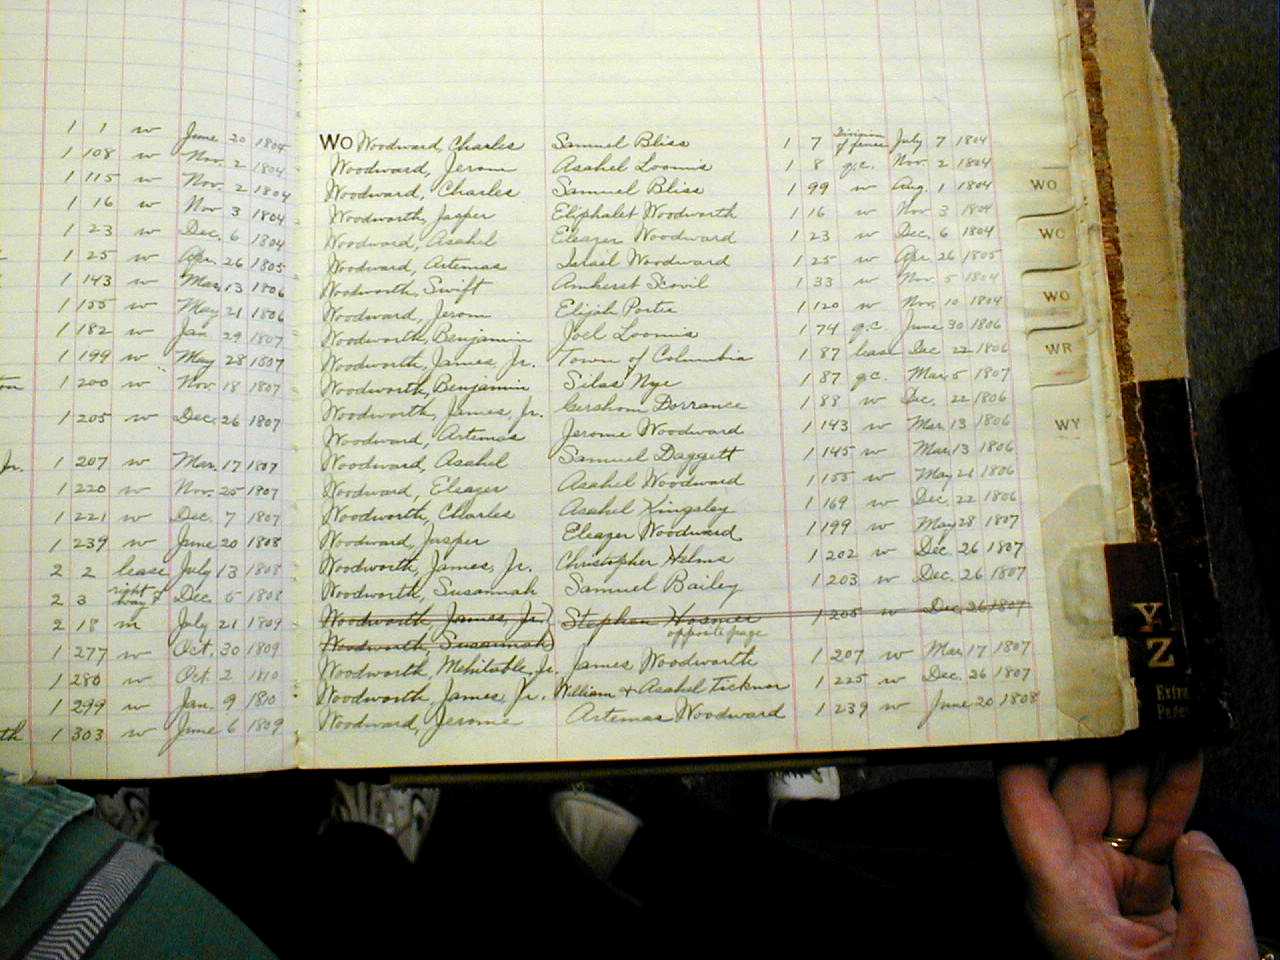 1 1 w June 20 1804
1 108 w Nov. 2 1804
1 115 w Nov. 2 1804
1 16 w Nov 3 1804
1 23 w Dec. 6 1804
1 25 w Apr. 26 1805
1 143 w Mar. 13 1806
1 155 w May 21 1806
1 182 w Jan. 29 1807
1 199 w May 28 1807
1 200 w Nov 18 1807
1 205 w Dec. 26 1807
Jr. 1 207 w Mar. 17 1807
1 220 w Nov. 25 1807
1 221 w Dec. 7 1807
1 239 w June 20 1808
2 2 lease July 13 1808
2 3 right way Dec. 5 1808
2 18 m July 21 1809
1 277 w Oct. 30 1809
1 280 w Oct. 2 1810
1 299 w Jan. 9 1810
th 1 303 w June 6 1809
WO Woodward, Charles Samuel Bliss 1 7 Division of fence July 7 1804
Woodward, Jerom Asahel Loomis 1 8 q.c. Nov. 2 1804
Woodward, Charles Samuel Bliss 1 99 w Aug. 1 1804
Woodworth, Jasper Eliphalet Woodworth 1 16 w Nov 3 1804
Woodward, Asahel Eleazer Woodward 1 23 w Dec. 6 1804
Woodward, Artemas Israel Woodward 1 25 w Apr 26 1805
Woodworth, Swift Amherst Scovil 1 33 w Nov. 5 1804
Woodward, Jerom Elijah Porter 1 120 w Nov. 10 1804
Woodworth, Benjamin Joel Loomis 1 74 q.c. June 30 1806
Woodworth, James, Jr. Town of Columbia 1 87 lease Dec 22 1806
Woodworth, Benjamin Silas Nye 1 87 q.c. Mar. 5 1807
Woodworth, James, Jr. Gershom Dorrance 1 88 w Dec. 22 1806
Woodward, Artemas Jerome Woodward 1 143 w Mar. 13 1806
Woodward, Asahel Samuel Daggett 1 145 w Mar. 13 1806
Woodward, Eleazer Asahel Woodward 1 155 w May 21 1806
Woodworth, Charles Asahel Kingsley 1 169 w Dec. 22 1806
Woodward, Jasper Eleazer Woodward 1 199 w May 28 1807
Woodworth, James, Jr. Christopher Helms 1 202 w Dec. 26 1807
Woodworth, Susannah Samuel Bailey 1 203 w Dec. 26 1807
Woodworth, James, Jr.) Stephen Hosmer 1 205 w Dec. 26 1807
Woodworth, Susannah) opposite page
Woodworth, Mehitable, Jr. James Woodworth 1 207 w Mar. 17 1807
Woodworth, James, Jr. William & Asahel Tickner 1 225 w Dec. 26 1807
Woodward, Jerome Artemas Woodward 1 239 w June 20 1808
WO
WO
WO
WR
WY
Y
Z
Extra
Pages